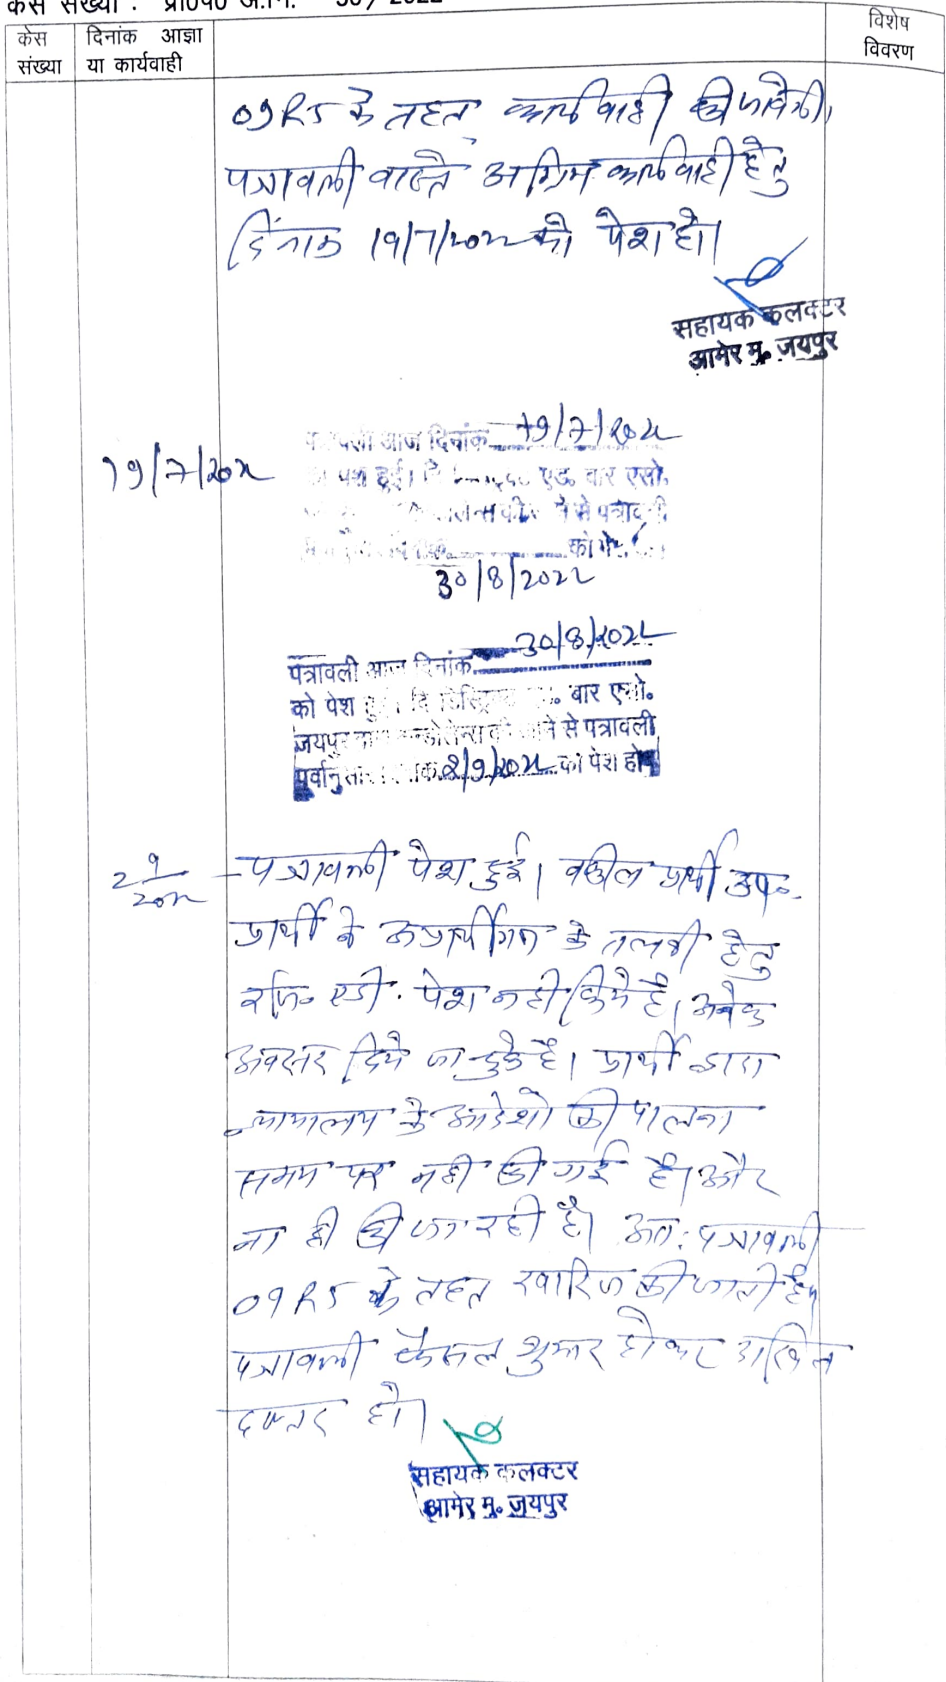 केस संख्या : प्रा०प० अ.नि. 50/2022
केस संख्या
दिनांक आज्ञा या कार्यवाही
विशेष विवरण
O9R5 के तहत कार्यवाही की जावेगी।
पत्रावली वास्ते अग्रिम कार्यवाही हेतु
दिंनाक 19/7/2022 को पेश हो।
सहायक कलक्टर
आमेर मु. जयपुर
19/7/2022
आज दिनांक 19/7/2022
पेश हुई। एड. बार एसो.
से पत्रावली
को पेश
30/8/2022
पत्रावली आज दिनांक 30/8/2022
को पेश हुई। दि डिस्ट्रिक्ट बार एसो.
जयपुर से पत्रावली
पूर्वानुसार 2/9/2022 को पेश हो।
2/9/2022
- पत्रावली पेश हुई। वकील प्रार्थी उप.
प्रार्थी के अप्रार्थीगण के तलबी हेतु
रजि. एडी. पेश नही किये है। अनेक
अवसर दिये जा चुके है। प्रार्थी द्वारा
न्यायालय के आदेशो की पालना
समय पर नही की गई है। और
ना ही की जा रही है। अत: पत्रावली
O9R5 के तहत खारिज की जाती है।
पत्रावली फैसल शुमार होकर दाखिल
दफ्तर हो।
सहायक कलक्टर
आमेर मु. जयपुर